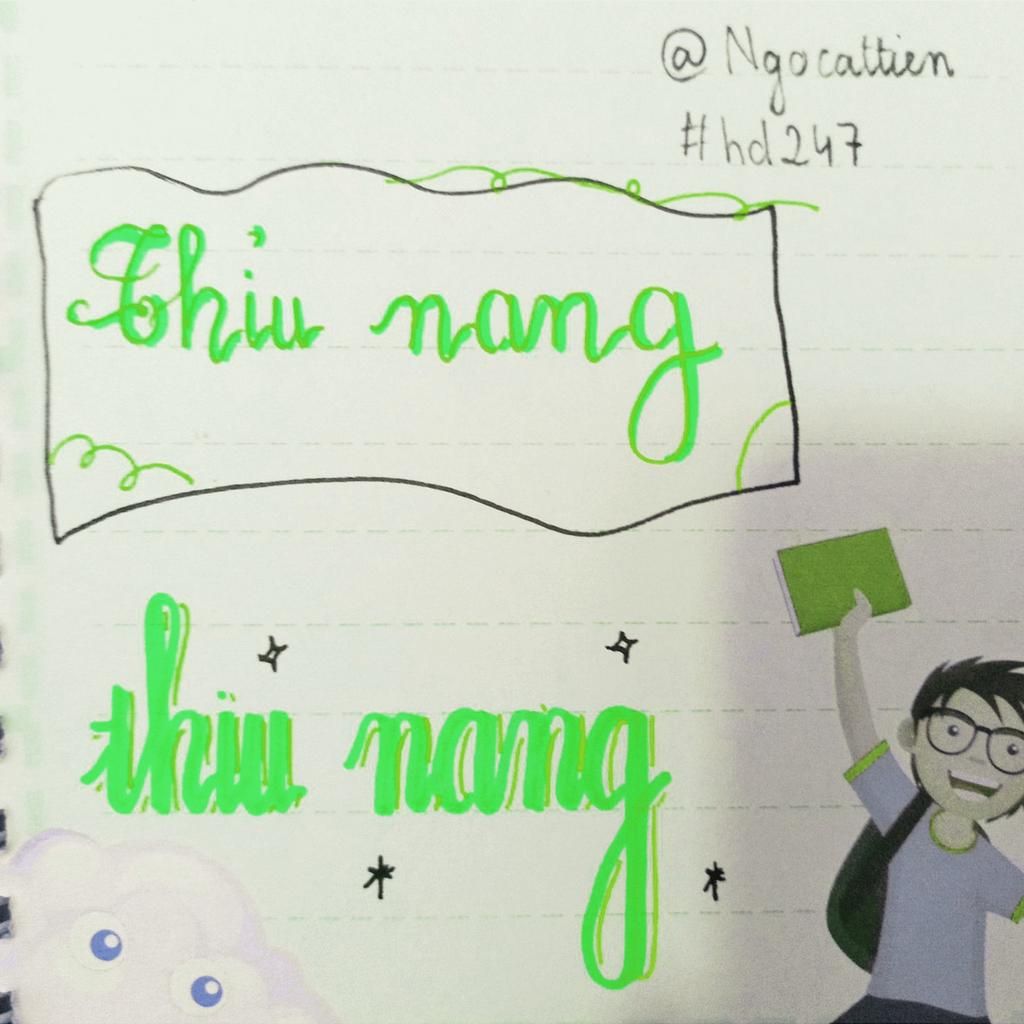 @ Ngocattien
#hd247
Thiu nang
thiu nang